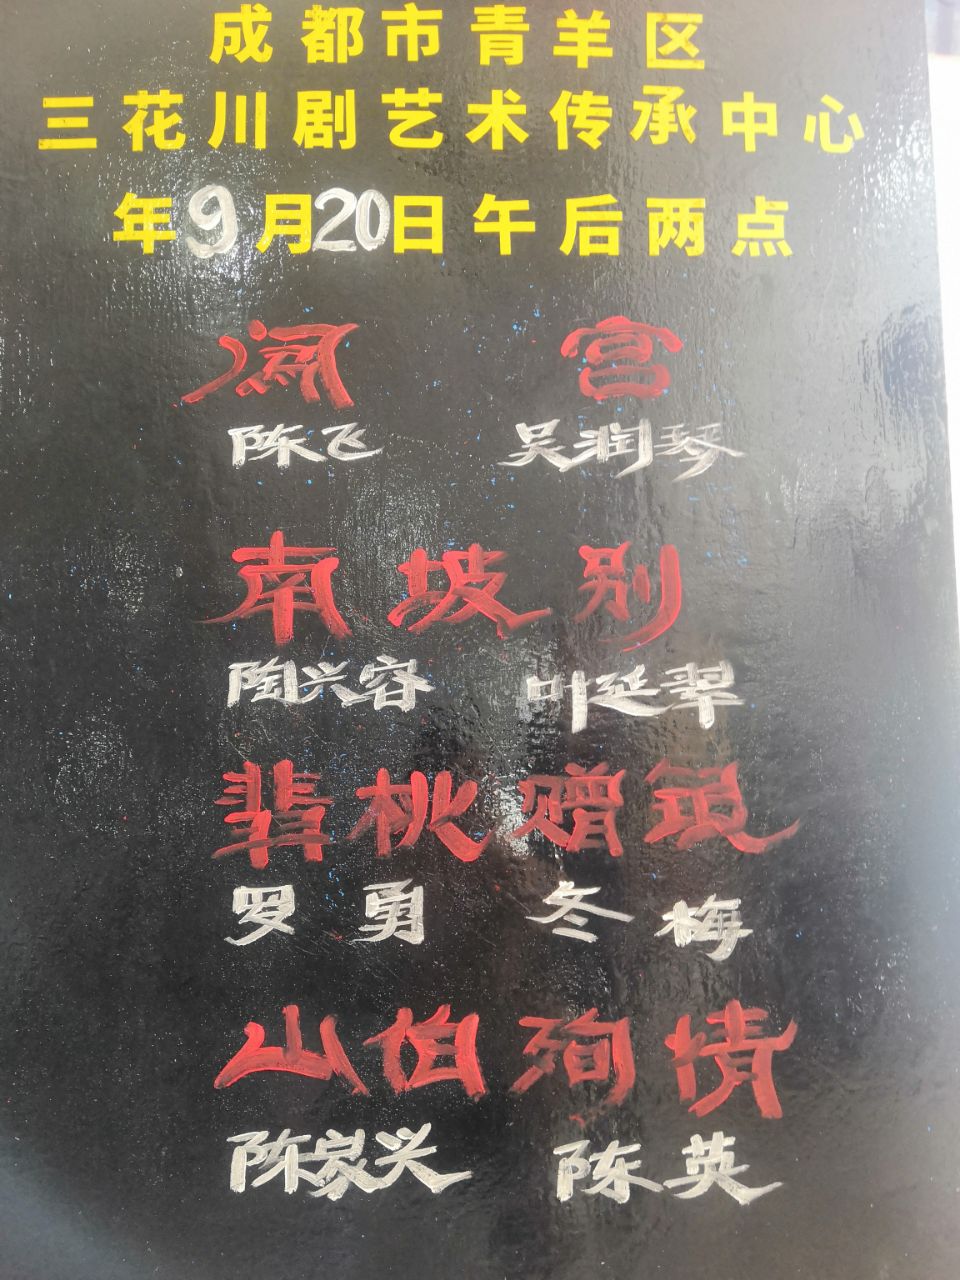 成都市青羊区
三花川剧艺术传承中心
年9月20日午后两点
闹宫
陈飞 吴润琴
南坡别
陶兴容 叶延翠
翡桃赠银
罗勇 冬梅
山伯殉情
陈家兴 陈英